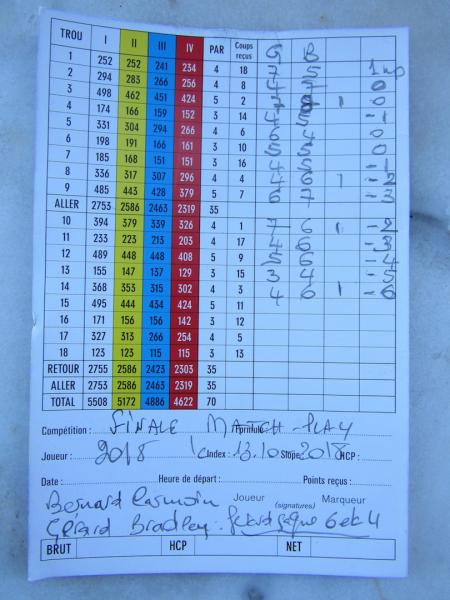 TROU I II III IV PAR Coups reçus G B
1 252 252 241 234 4 18 7 5 1 up
2 294 283 266 256 4 8 4
3 498 462 451 424 5 2 1 0
4 174 166 159 152 3 14 -1
5 331 304 294 266 4 6 4 0
6 198 191 166 161 3 10 5 5 0
7 185 168 151 151 3 16 4 5 -1
8 336 317 307 296 4 4 4 6 1 -2
9 485 443 428 379 5 7 6 7 -3
ALLER 2753 2586 2463 2319 35
10 394 379 339 326 4 1 7 6 1 -2
11 233 223 213 203 4 17 4 6 -3
12 489 448 448 408 5 9 5 6 -4
13 155 147 137 129 3 15 3 4 -5
14 368 353 315 302 4 3 4 6 1 -6
15 495 444 434 424 5 11
16 171 156 156 142 3 12
17 327 313 266 254 4 5
18 123 123 115 115 3 13
RETOUR 2755 2586 2423 2303 35
ALLER 2753 2586 2463 2319 35
TOTAL 5508 5172 4886 4622 70
Compétition : FINALE MATCH-PLAY Formule
Joueur : 2018 Index : 13.10 Slope 2018 HCP :
Date : Heure de départ : Points reçus :
Bernard Joueur (signatures) Marqueur
Gérard Bradley : Gérard gagne 6 et 4
BRUT HCP NET